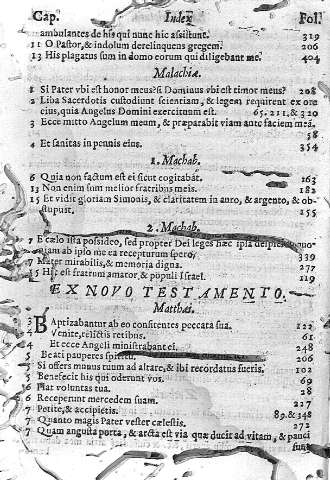 Cap. Index Fol.
ambulantes de his qui nunc hic assistunt. 319
11 O Pastor, & indolum derelinquens gregem. 206
13 His plagatus sum in domo eorum qui diligebant me. 404
Malachiæ.
1 Si Pater vbi est honor meus? si Dominus vbi est timor meus? 208
2 Libia Sacerdotis custodiunt scientiam, & legem requirent ex ore
eius, quia Angelus Domini exercituum est. 65. 211, & 320
3 Ecce mitto Angelum meum, & præparabit viam ante faciem meam
58.
4 Et sanitas in pennis eius. 354
1. Machab.
6 Quia non factum est ei sicut cogitabat. 163
13 Non enim sum melior fratribus meis. 182
15 Et vidit gloriam Simonis, & claritatem in auro, & argento, & ob-
stupuit. 255
2. Machab.
7 E cælo ista possideo, sed propter Dei leges hæc ipsa despicio quo-
niam ab ipso me ea recepturum spero. 339
7 Mater mirabilis, & memoria digna. 277
15 Hic est fratrum amator, & populi Israel. 119
EX NOVO TESTAMENTO.
Matthæi.
3 Baptizabantur ab eo confitentes peccata sua. 122
4 Venite, relictis retibus. 61
4 Et ecce Angeli ministrabant ei. 248
Beati pauperes spiritu. 206
5 Si offers munus tuum ad altare, & ibi recordatus fueris. 102
5 Benefecit his qui oderunt vos. 69
6 Fiat voluntas tua. 28
6 Receperunt mercedem suam. 227
7 Petite, & accipietis. 89. & 348
7 Quanto magis Pater vester cælestis. 272
7 Quam angusta porta, & arcta est via quæ ducit ad vitam, & pauci
sunt